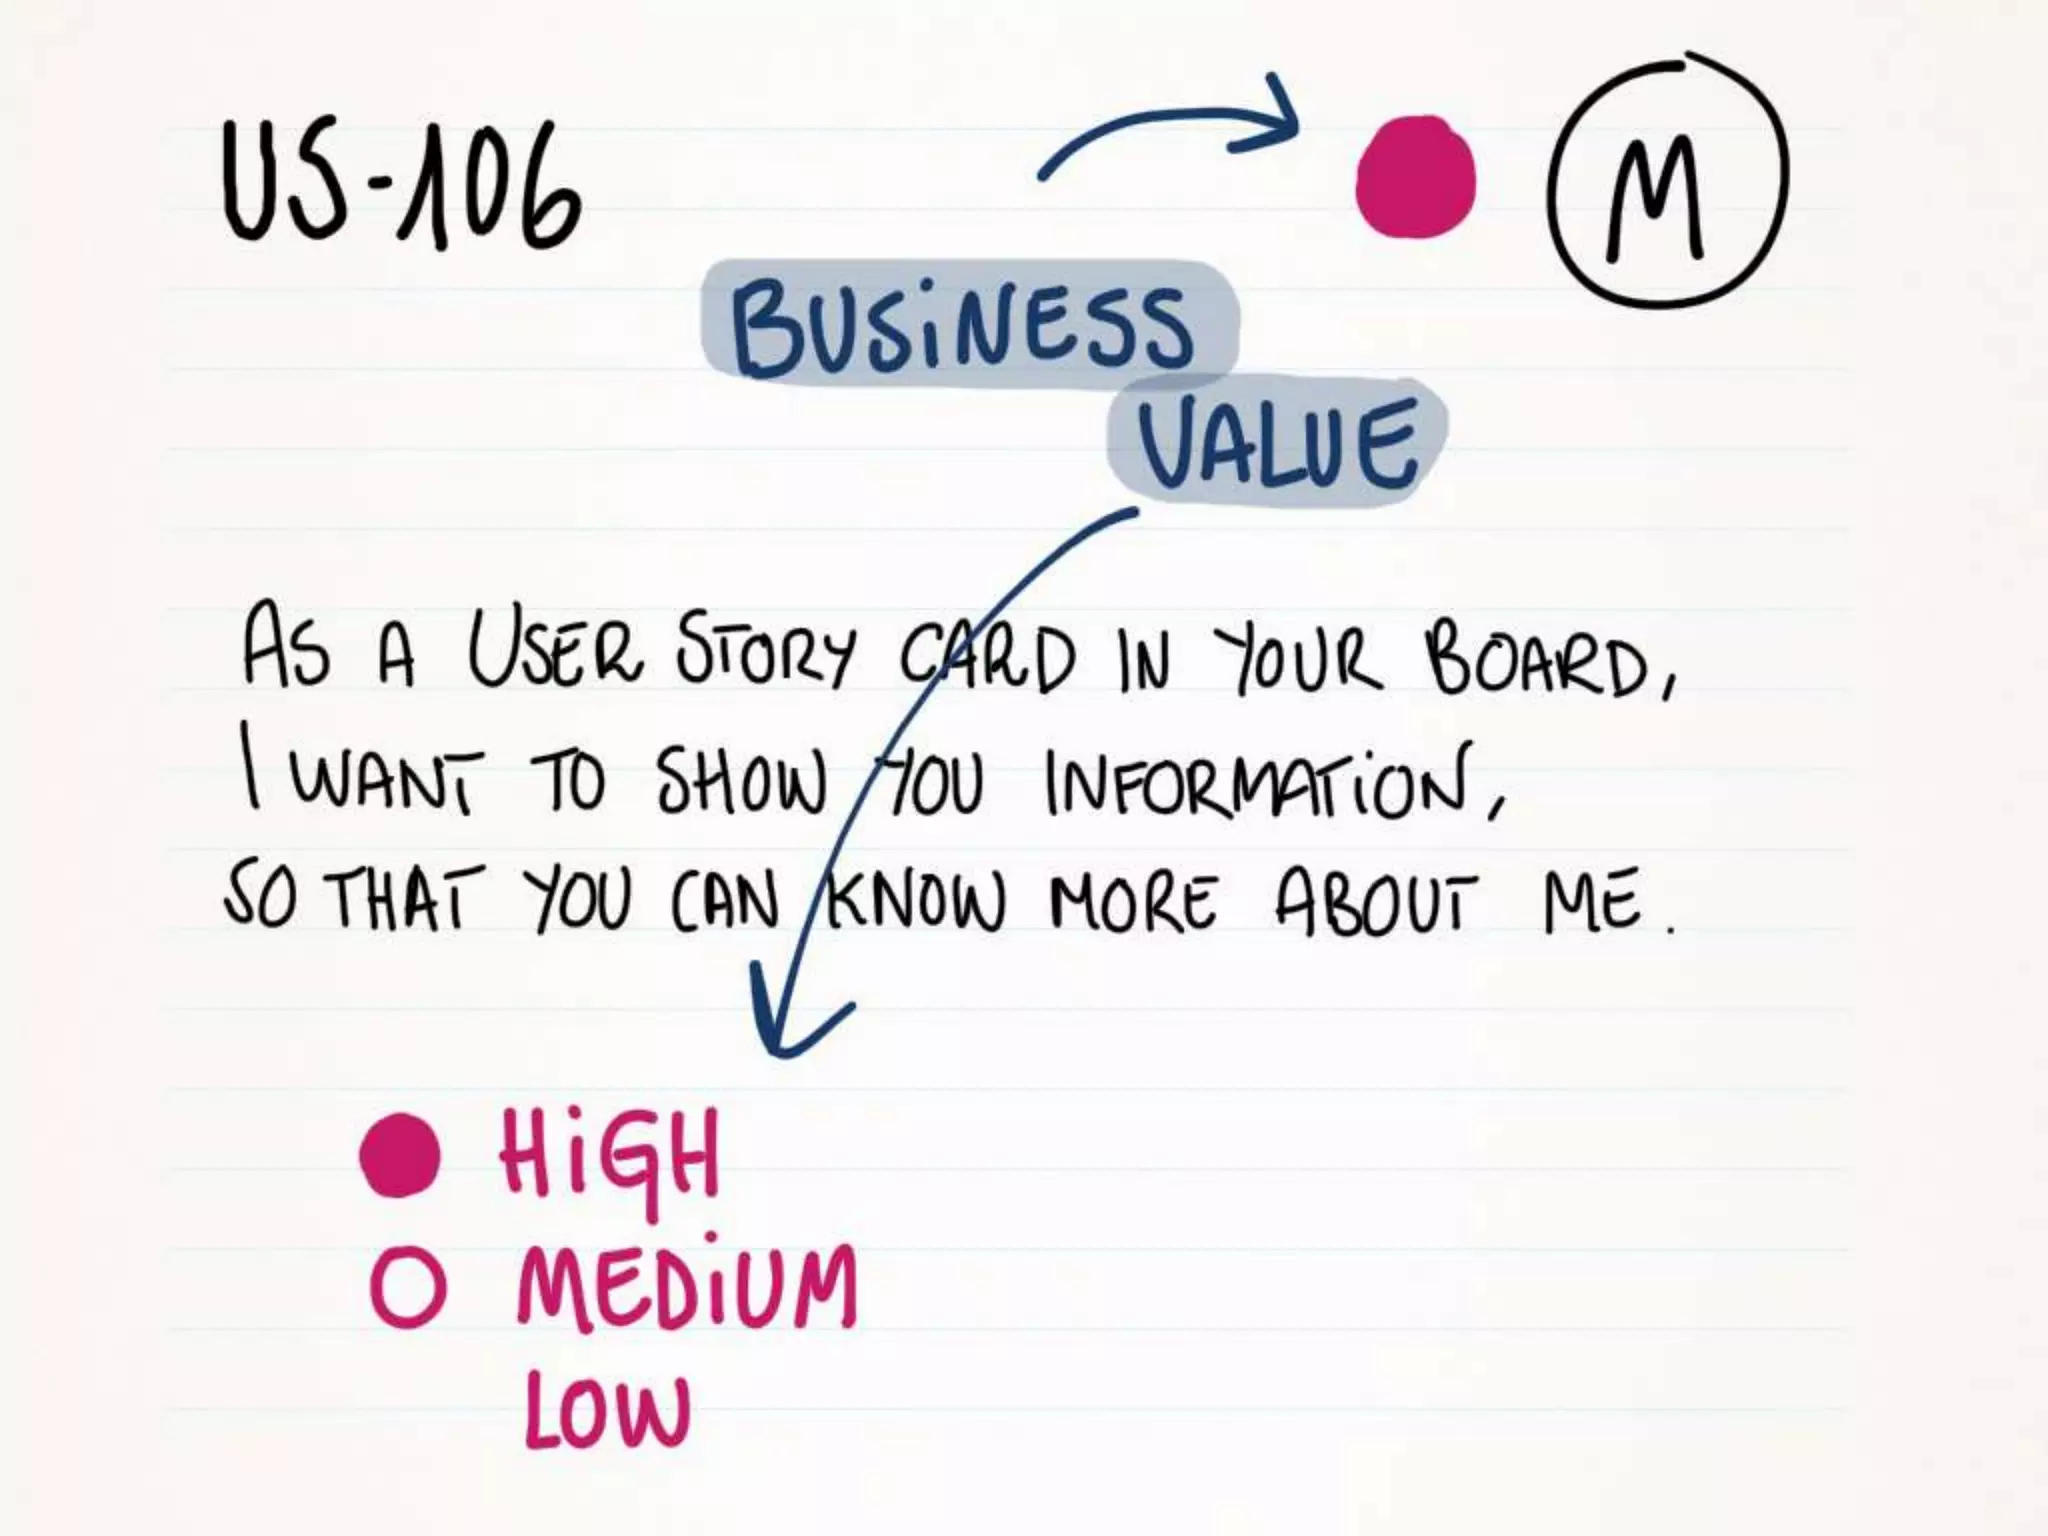 US-106
M
BUSiNESS
VALUE
AS A USER STORY CARD IN YOUR BOARD,
I WANT TO SHOW YOU INFORMATiON,
SO THAT YOU CAN KNOW MORE ABOUT ME.
HiGH
MEDiUM
LOW